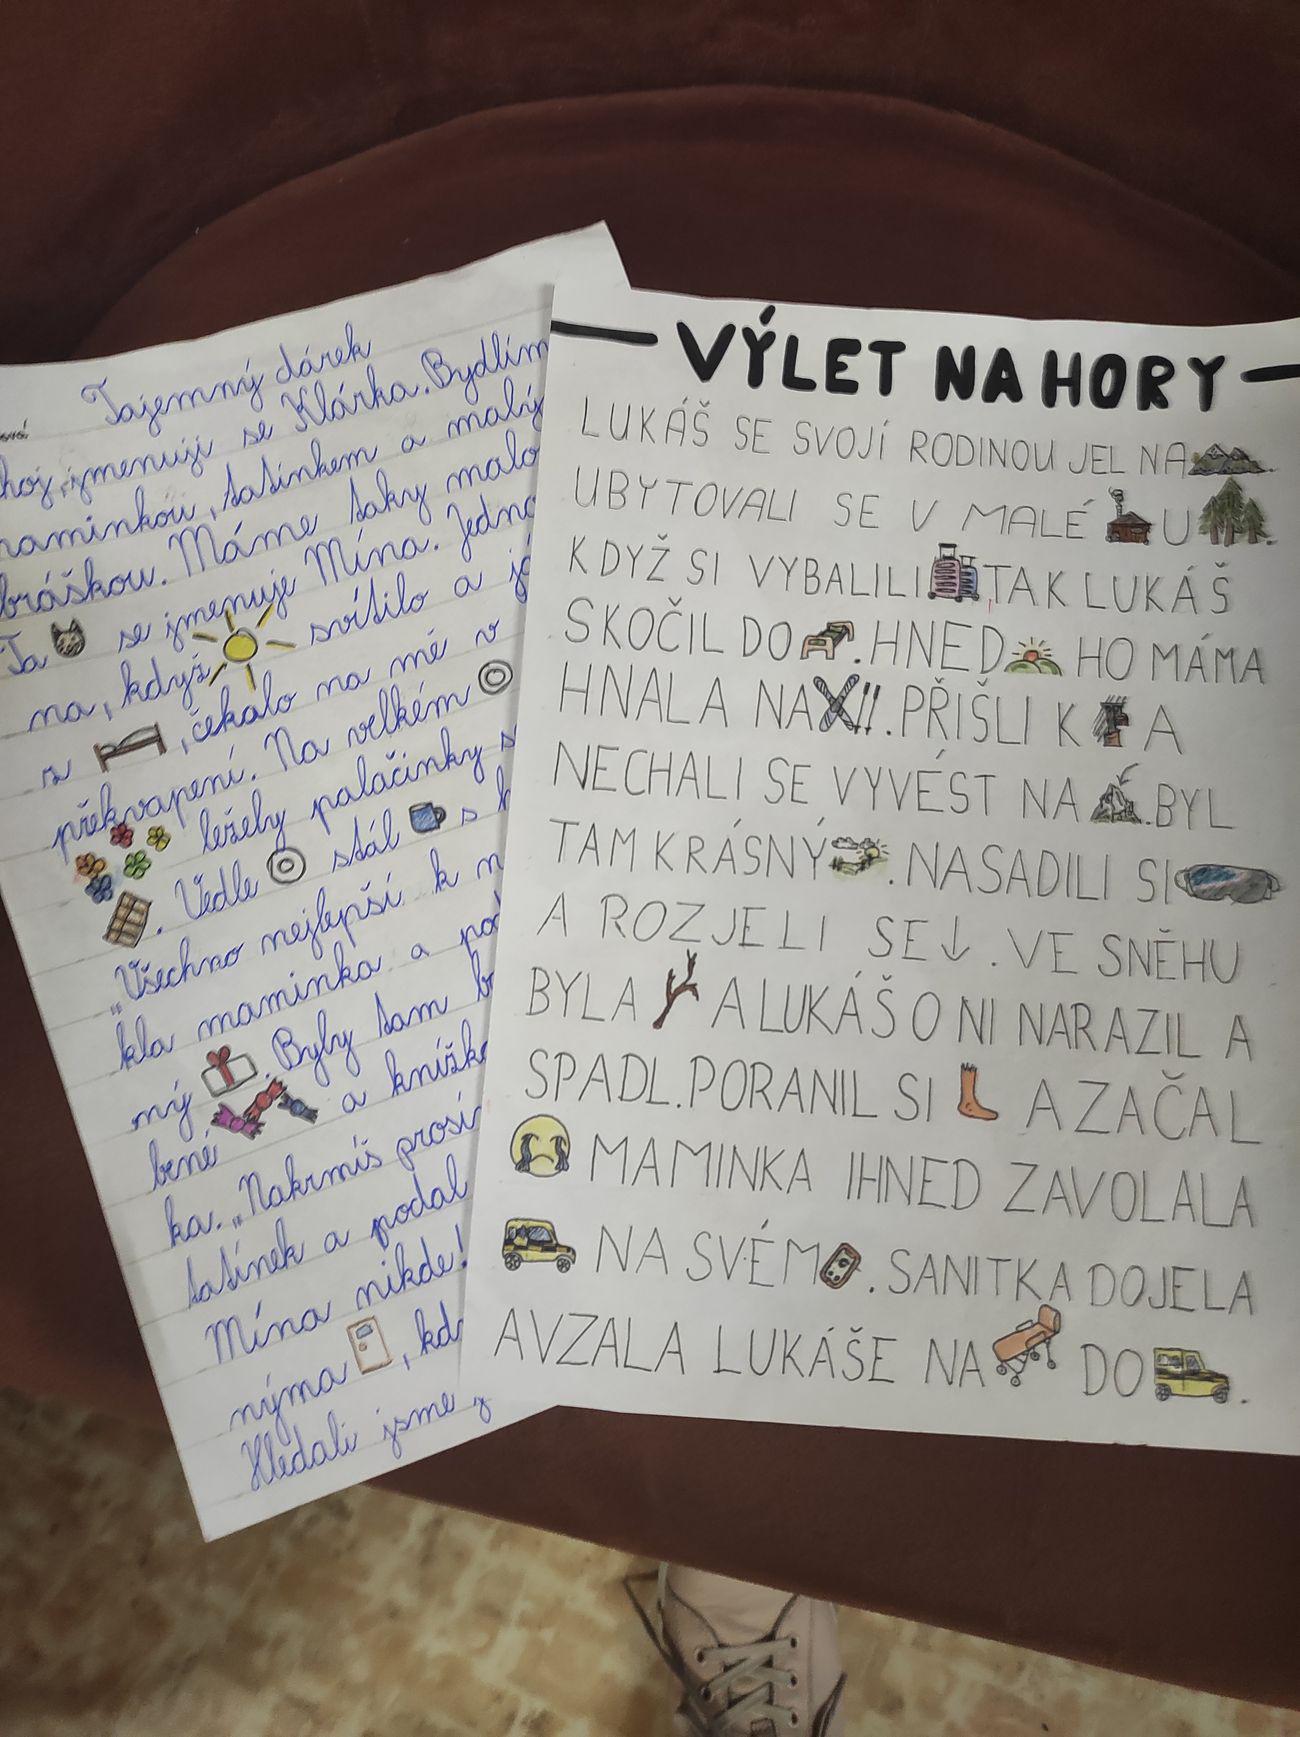 Tajemný dárek
hoj, jmenuji se Klárka. Bydlím
maminkou, tatínkem a malý
bráškou. Máme taky malo
Ta se jmenuje Mína. Jedno
na, když svítilo a já
z , čekalo na mé v
překvapení. Na velkém
ležely palačinky s
. Vedle stál s k
„Všechno nejlepší k n
kla maminka a pod
ný . Byly tam b
bené a knížka
ka. „Nakrmíš prosí
tatínek a podal
Mína nikde!
nýma , kd
Hledali jsme
VÝLET NA HORY
LUKÁŠ SE SVOJÍ RODINOU JEL NA .
UBYTOVALI SE V MALÉ U .
KDYŽ SI VYBALILI TAK LUKÁŠ
SKOČIL DO . HNED HO MÁMA
HNALA NA . PŘIŠLI K A
NECHALI SE VYVÉST NA . BYL
TAM KRÁSNÝ . NASADILI SI
A ROZJELI SE ↓ . VE SNĚHU
BYLA A LUKÁŠ O NI NARAZIL A
SPADL. PORANIL SI A ZAČAL
MAMINKA IHNED ZAVOLALA
NA SVÉM . SANITKA DOJELA
A VZALA LUKÁŠE NA DO .